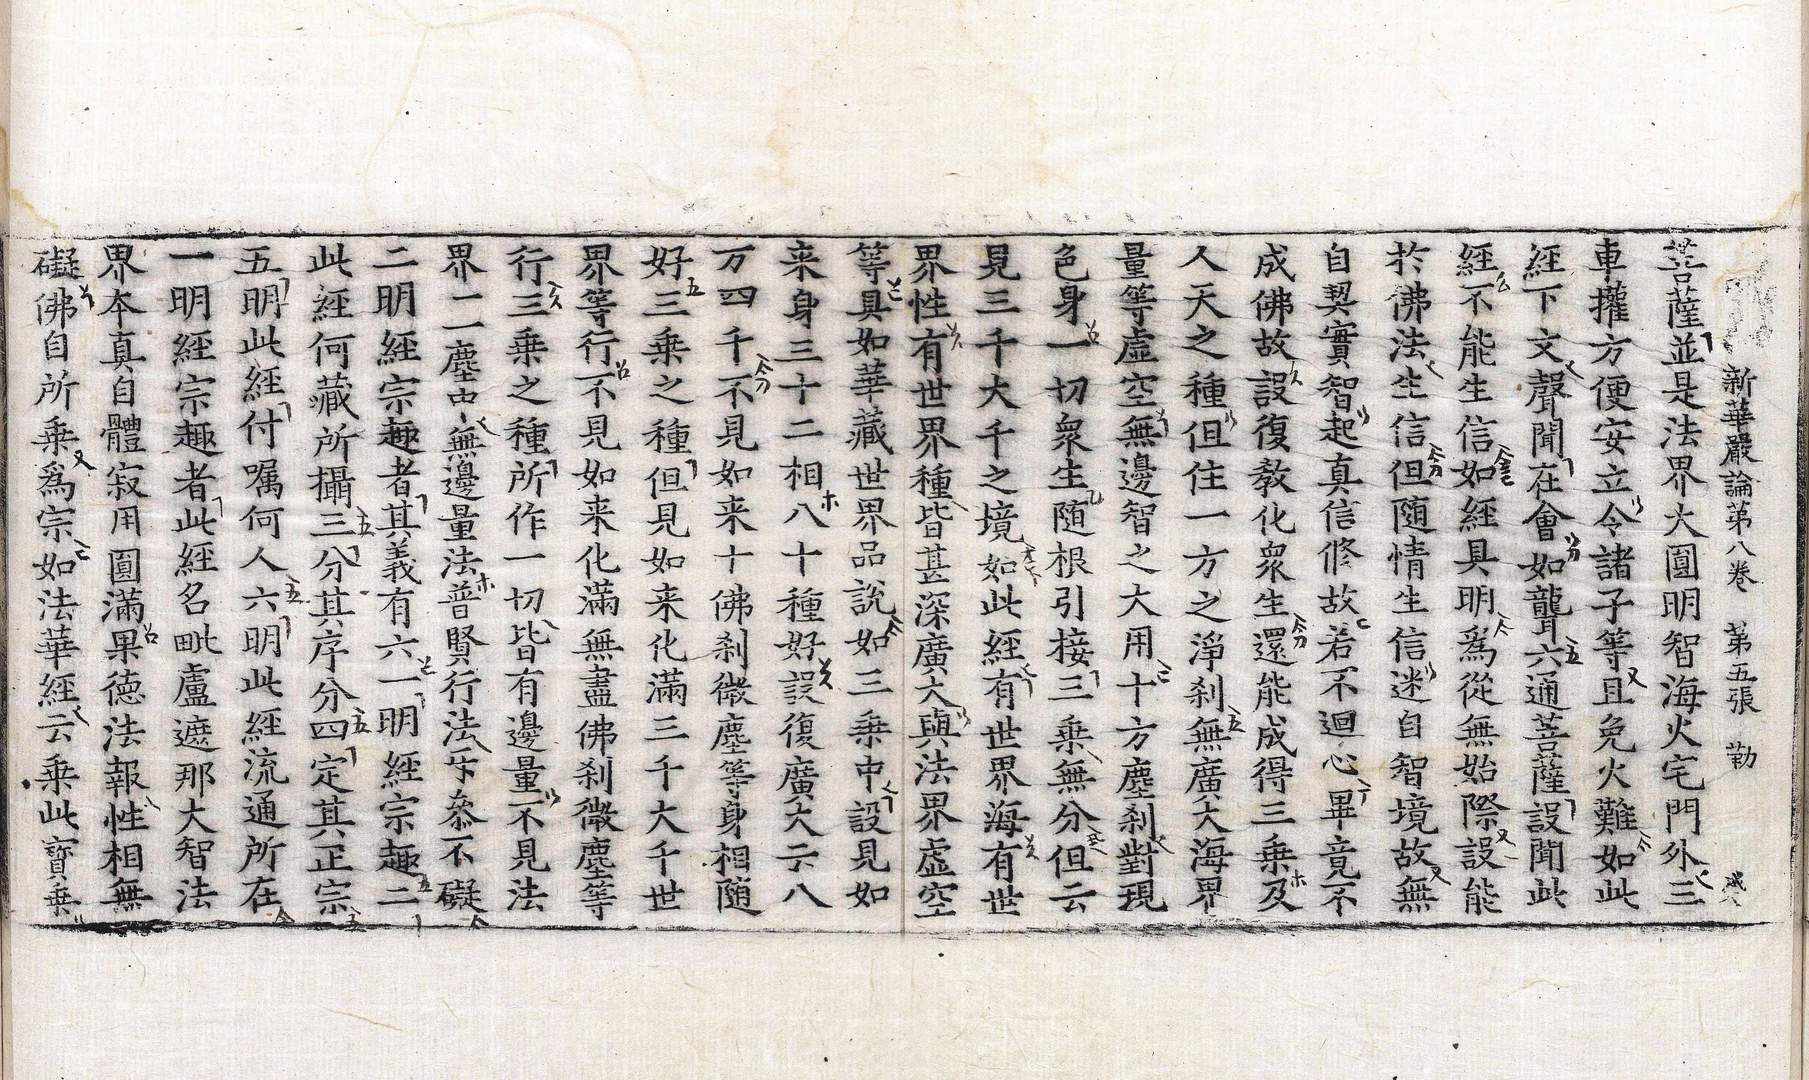 新華嚴論第八卷　第五張　勒
菩薩並是法界大圓明智海火宅門外三
車攉方便安立令諸子等且免火難如此
經下文聲聞在會如聾六通菩薩設聞此
經不能生信如經具明爲從無始際設能
扵佛法生信但随情生信迷自智境故無
自契實智起真信修故若不迴心畢竟不
成佛故設復教化衆生還能成得三乗及
人天之種但住一方之淨刹無廣大海界
量等虛空無邊智之大用十方塵刹對現
色身一切衆生随根引接三乗無分但云
見三千大千之境如此經有世界海有世
界性有世界種皆甚深廣大與法界虛空
等具如華藏世界品說如三乗中設見如
来身三十二相八十種好設復廣大云八
万四千不見如来十佛刹微塵等身相随
好三乗之種但見如来化滿三千大千世
界等行不見如来化滿無盡佛刹微塵等
行三乗之種所作一切皆有邊量不見法
界一一塵中無邊量法普賢行法㸦叅不礙
二明經宗趣者其義有六一明經宗趣二
此經何藏所攝三分其序分四定其正宗
五明此經付嘱何人六明此經流通所在
一明經宗趣者此經名毗盧遮那大智法
界本真自體寂用圓滿果德法報性相無
礙佛自所乗爲宗如法華經云乗此寳乗